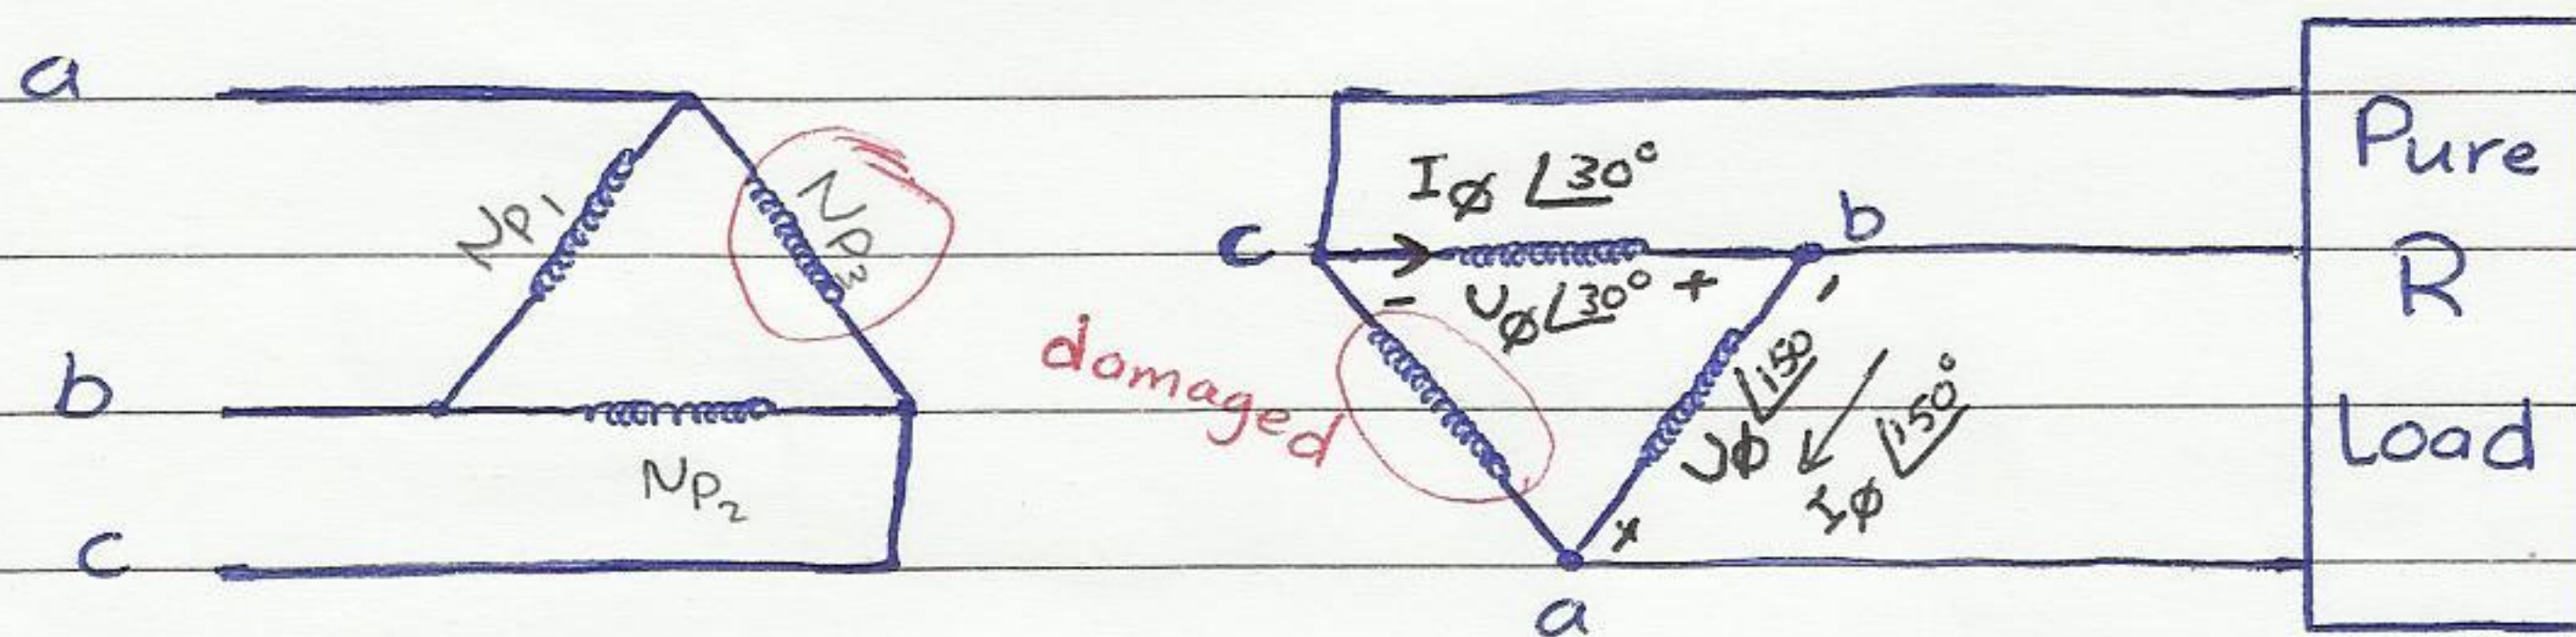 a
b
c
Np1
Np2
Np3
damaged
c
Iφ ∠30°
Uφ∠30° +
-
b
-
Uφ ∠150
Iφ ∠150°
+
a
Pure
R
Load